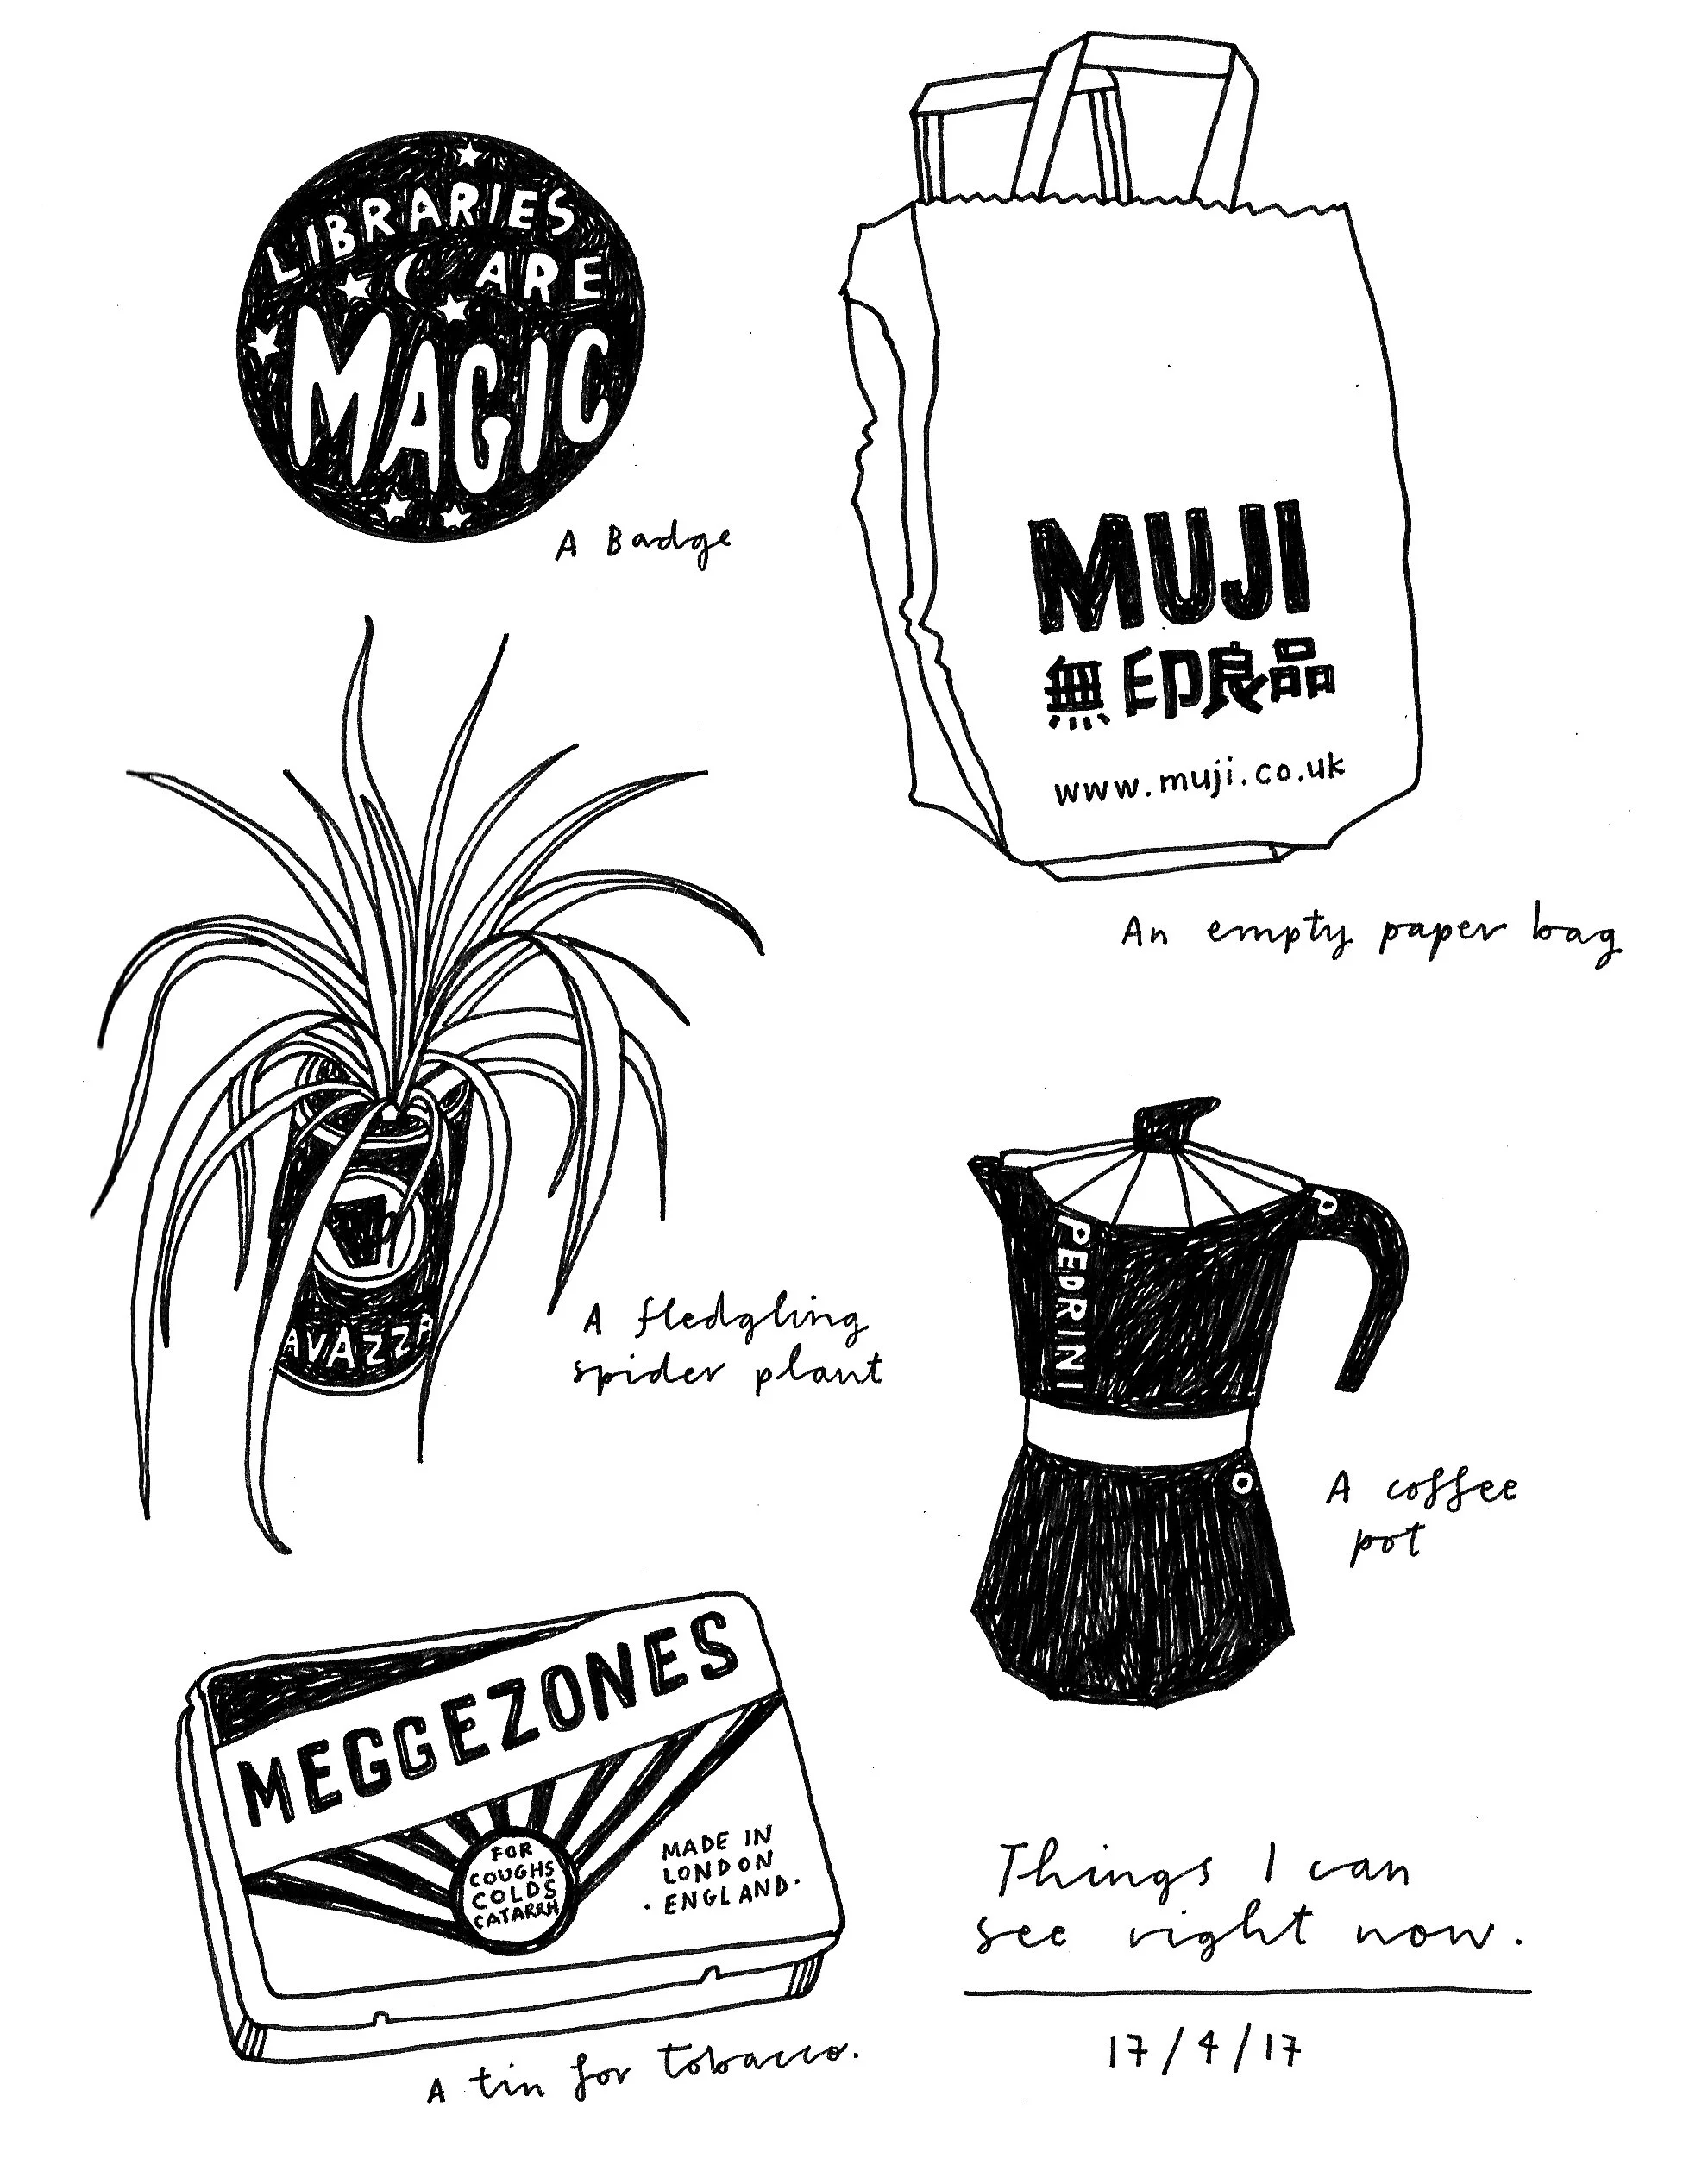 LIBRARIES
ARE
MAGIC
A Badge
MUJI
無印良品
www.muji.co.uk
An empty paper bag
AVAZZA
A fledgling
spider plant
P
PEDRINI
A coffee
pot
MEGGEZONES
FOR
COUGHS
COLDS
CATARRH
MADE IN
LONDON
·ENGLAND·
A tin for tobacco.
Things I can
see right now.
17/4/17